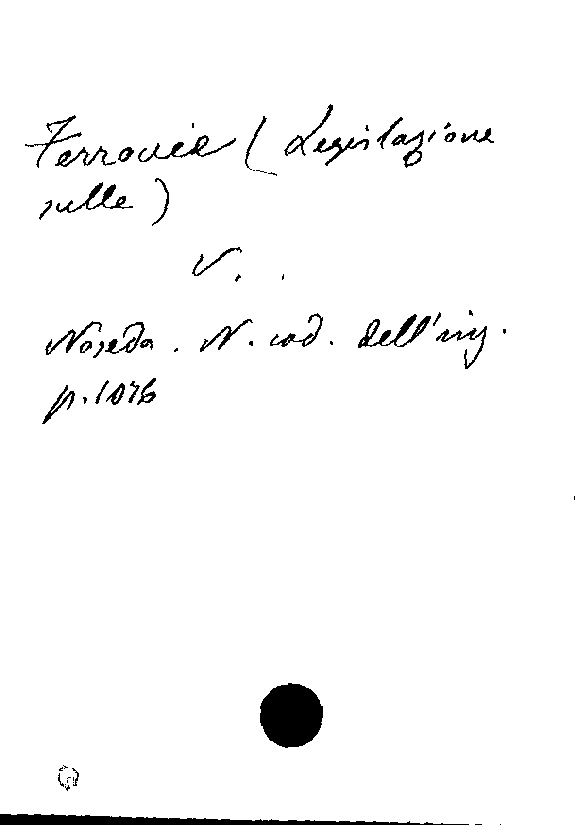 Ferrovie (Legislazione
sulle)
V.
Noseda. N. cod. dell'ing.
p. 1076